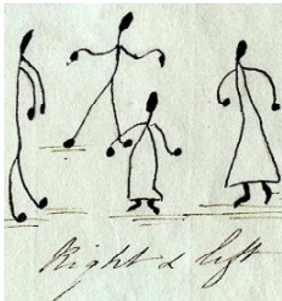 Right & left